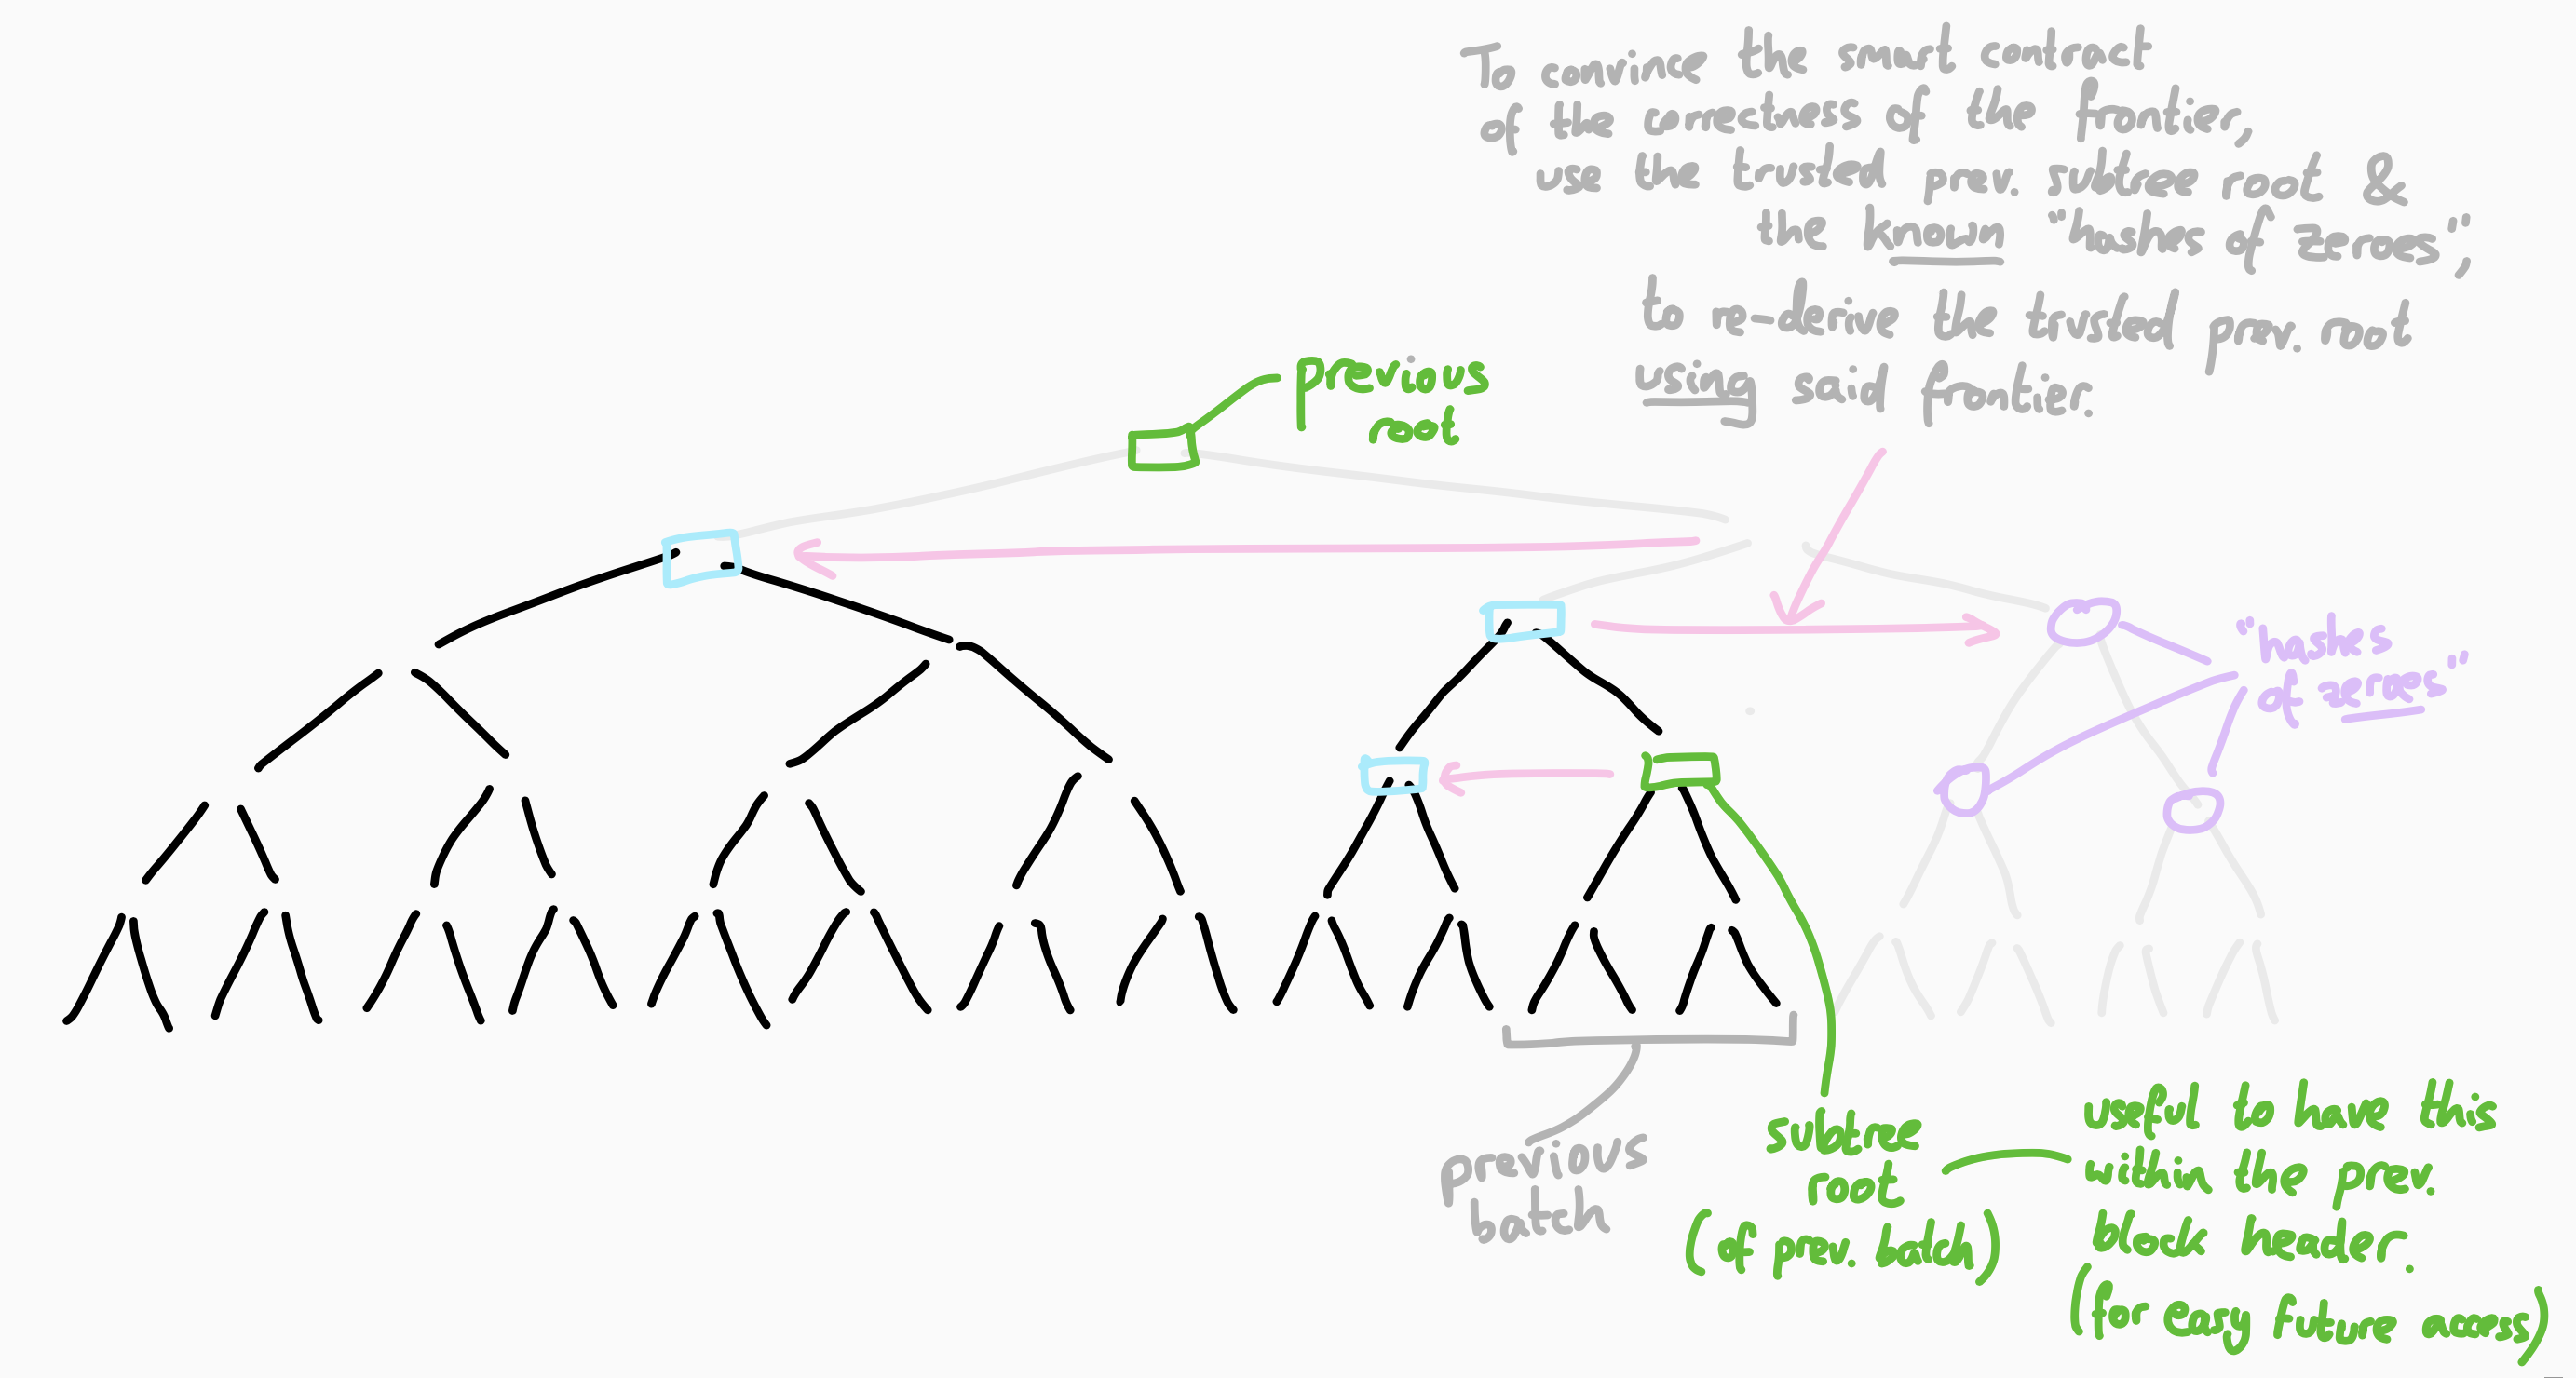 To convince the smart contract
of the correctness of the frontier,
use the trusted prev. subtree root &
the known "hashes of zeroes",
to re-derive the trusted prev. root
using said frontier.
previous
root
"hashes
of zeroes"
previous
batch
subtree
root
(of prev. batch)
useful to have this
within the prev.
block header.
(for easy future access)